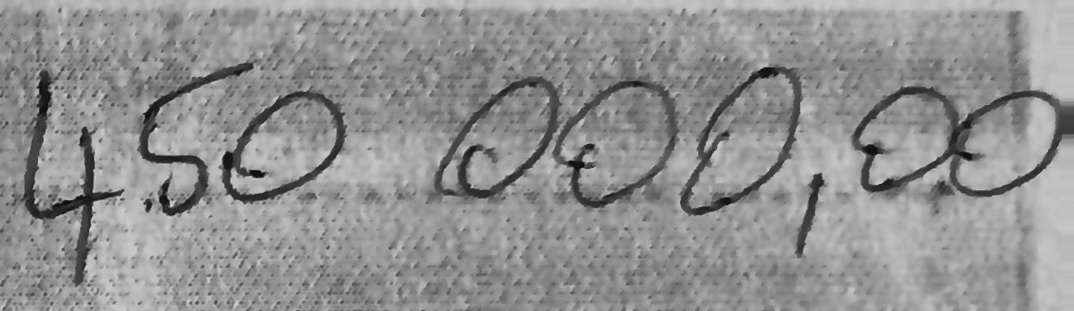 450 000,00